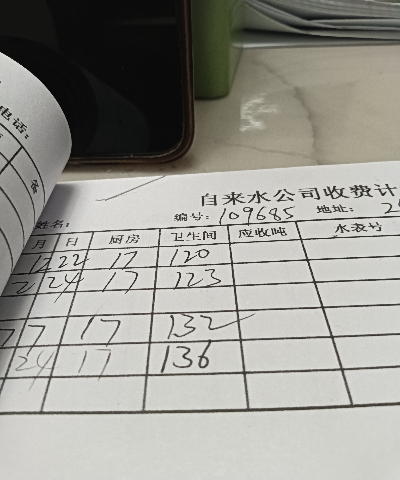 电话:
自来水公司收费计
姓名: 编号: 109685 地址: 2
月 日 厨房 卫生间 应收吨 水表号
12 22 17 120
2 24 17 123
7 17 132
24 17 136